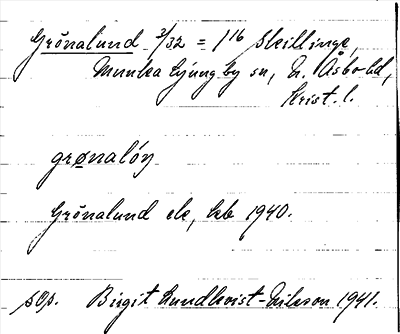 Grönalund 3/32 = 1/16 Skillinge,
Munka Ljungby sn, N. Åsbo hd,
Krist. l.
grønalóŋ
Grönalund ek, kb 1940.
sop. Birgit Lundkvist-Nilsson 1941.